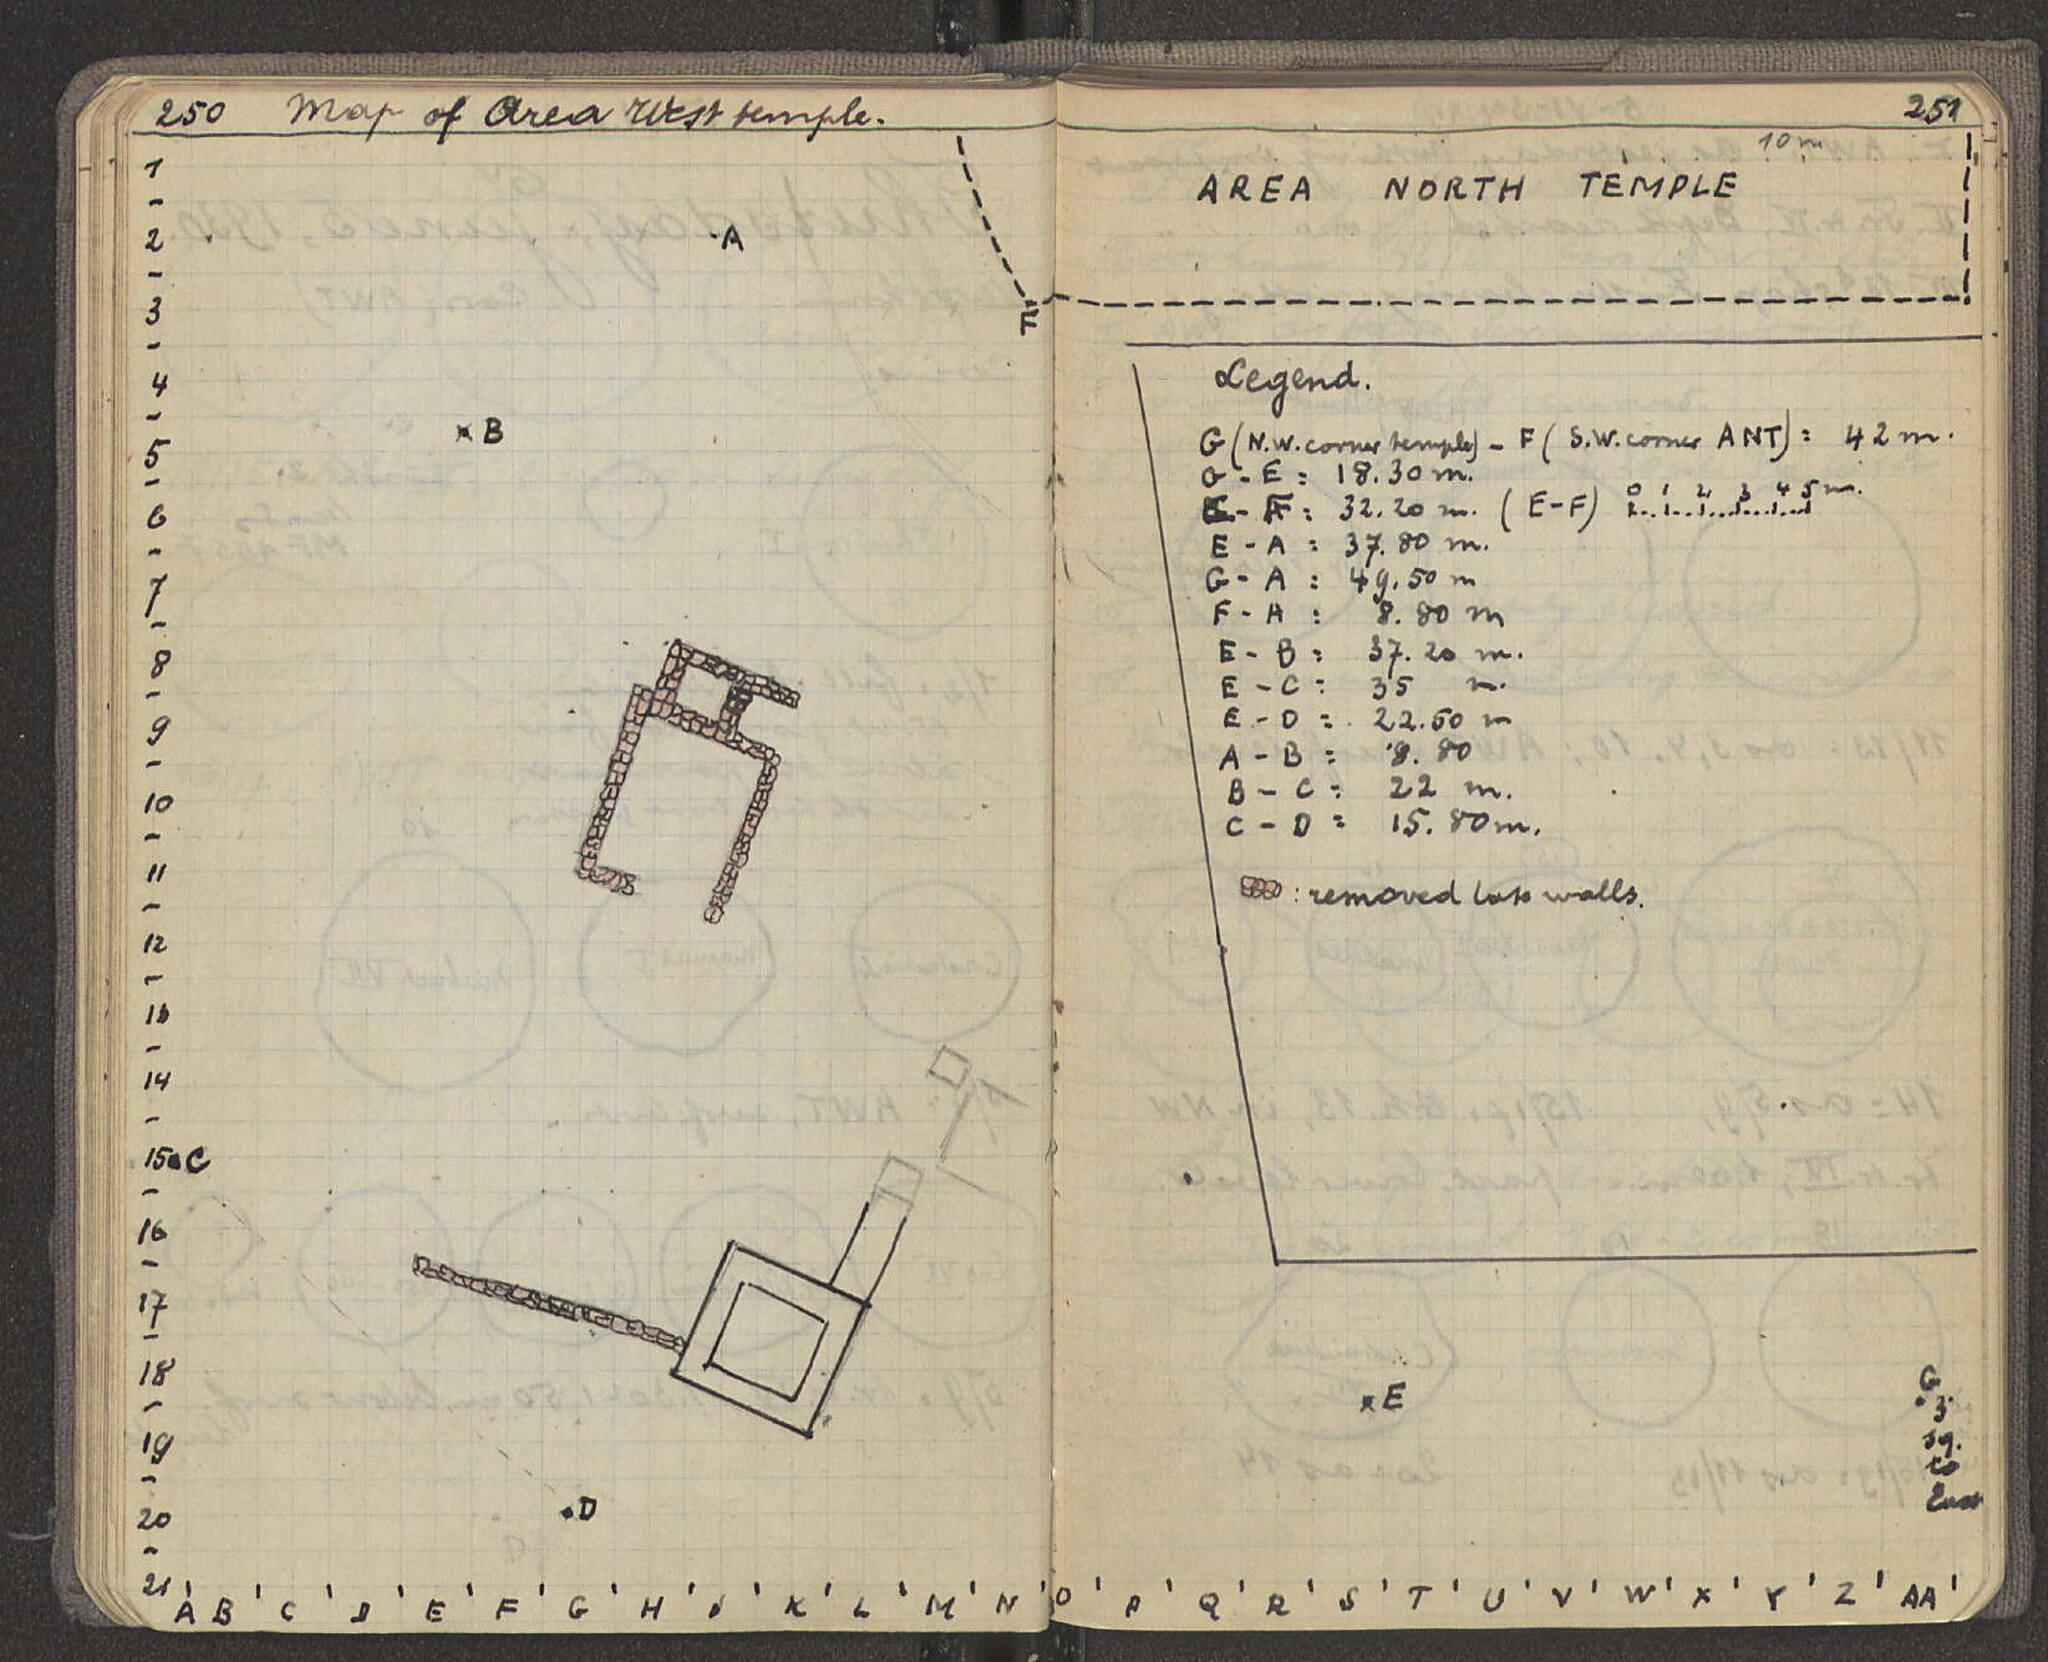 250 Map of Area West temple.
1
-
2
-
3
-
4
-
5
-
6
-
7
-
8
-
9
-
10
-
11
-
12
-
13
-
14
-
15
-
16
-
17
-
18
-
19
-
20
-
21
A
B
C
F
D
A B C D E F G H J K L M N
251
10 m
AREA NORTH TEMPLE
Legend.
G (N.W. corner temple) - F ( S.W. corner ANT) = 42 m.
G - E = 18.30 m.
F = 32.20 m. ( E-F) 0 1 2 3 4 5 m.
E - A = 37.80 m.
G - A = 49.50 m
F - A = 8.80 m
E - B = 37.20 m.
E - C = 35 m.
E - D = 22.50 m
A - B = 8.80
B - C = 22 m.
C - D = 15.80 m.
: removed late walls.
E
G
3
sq.
to
East
O P Q R S T U V W X Y Z AA